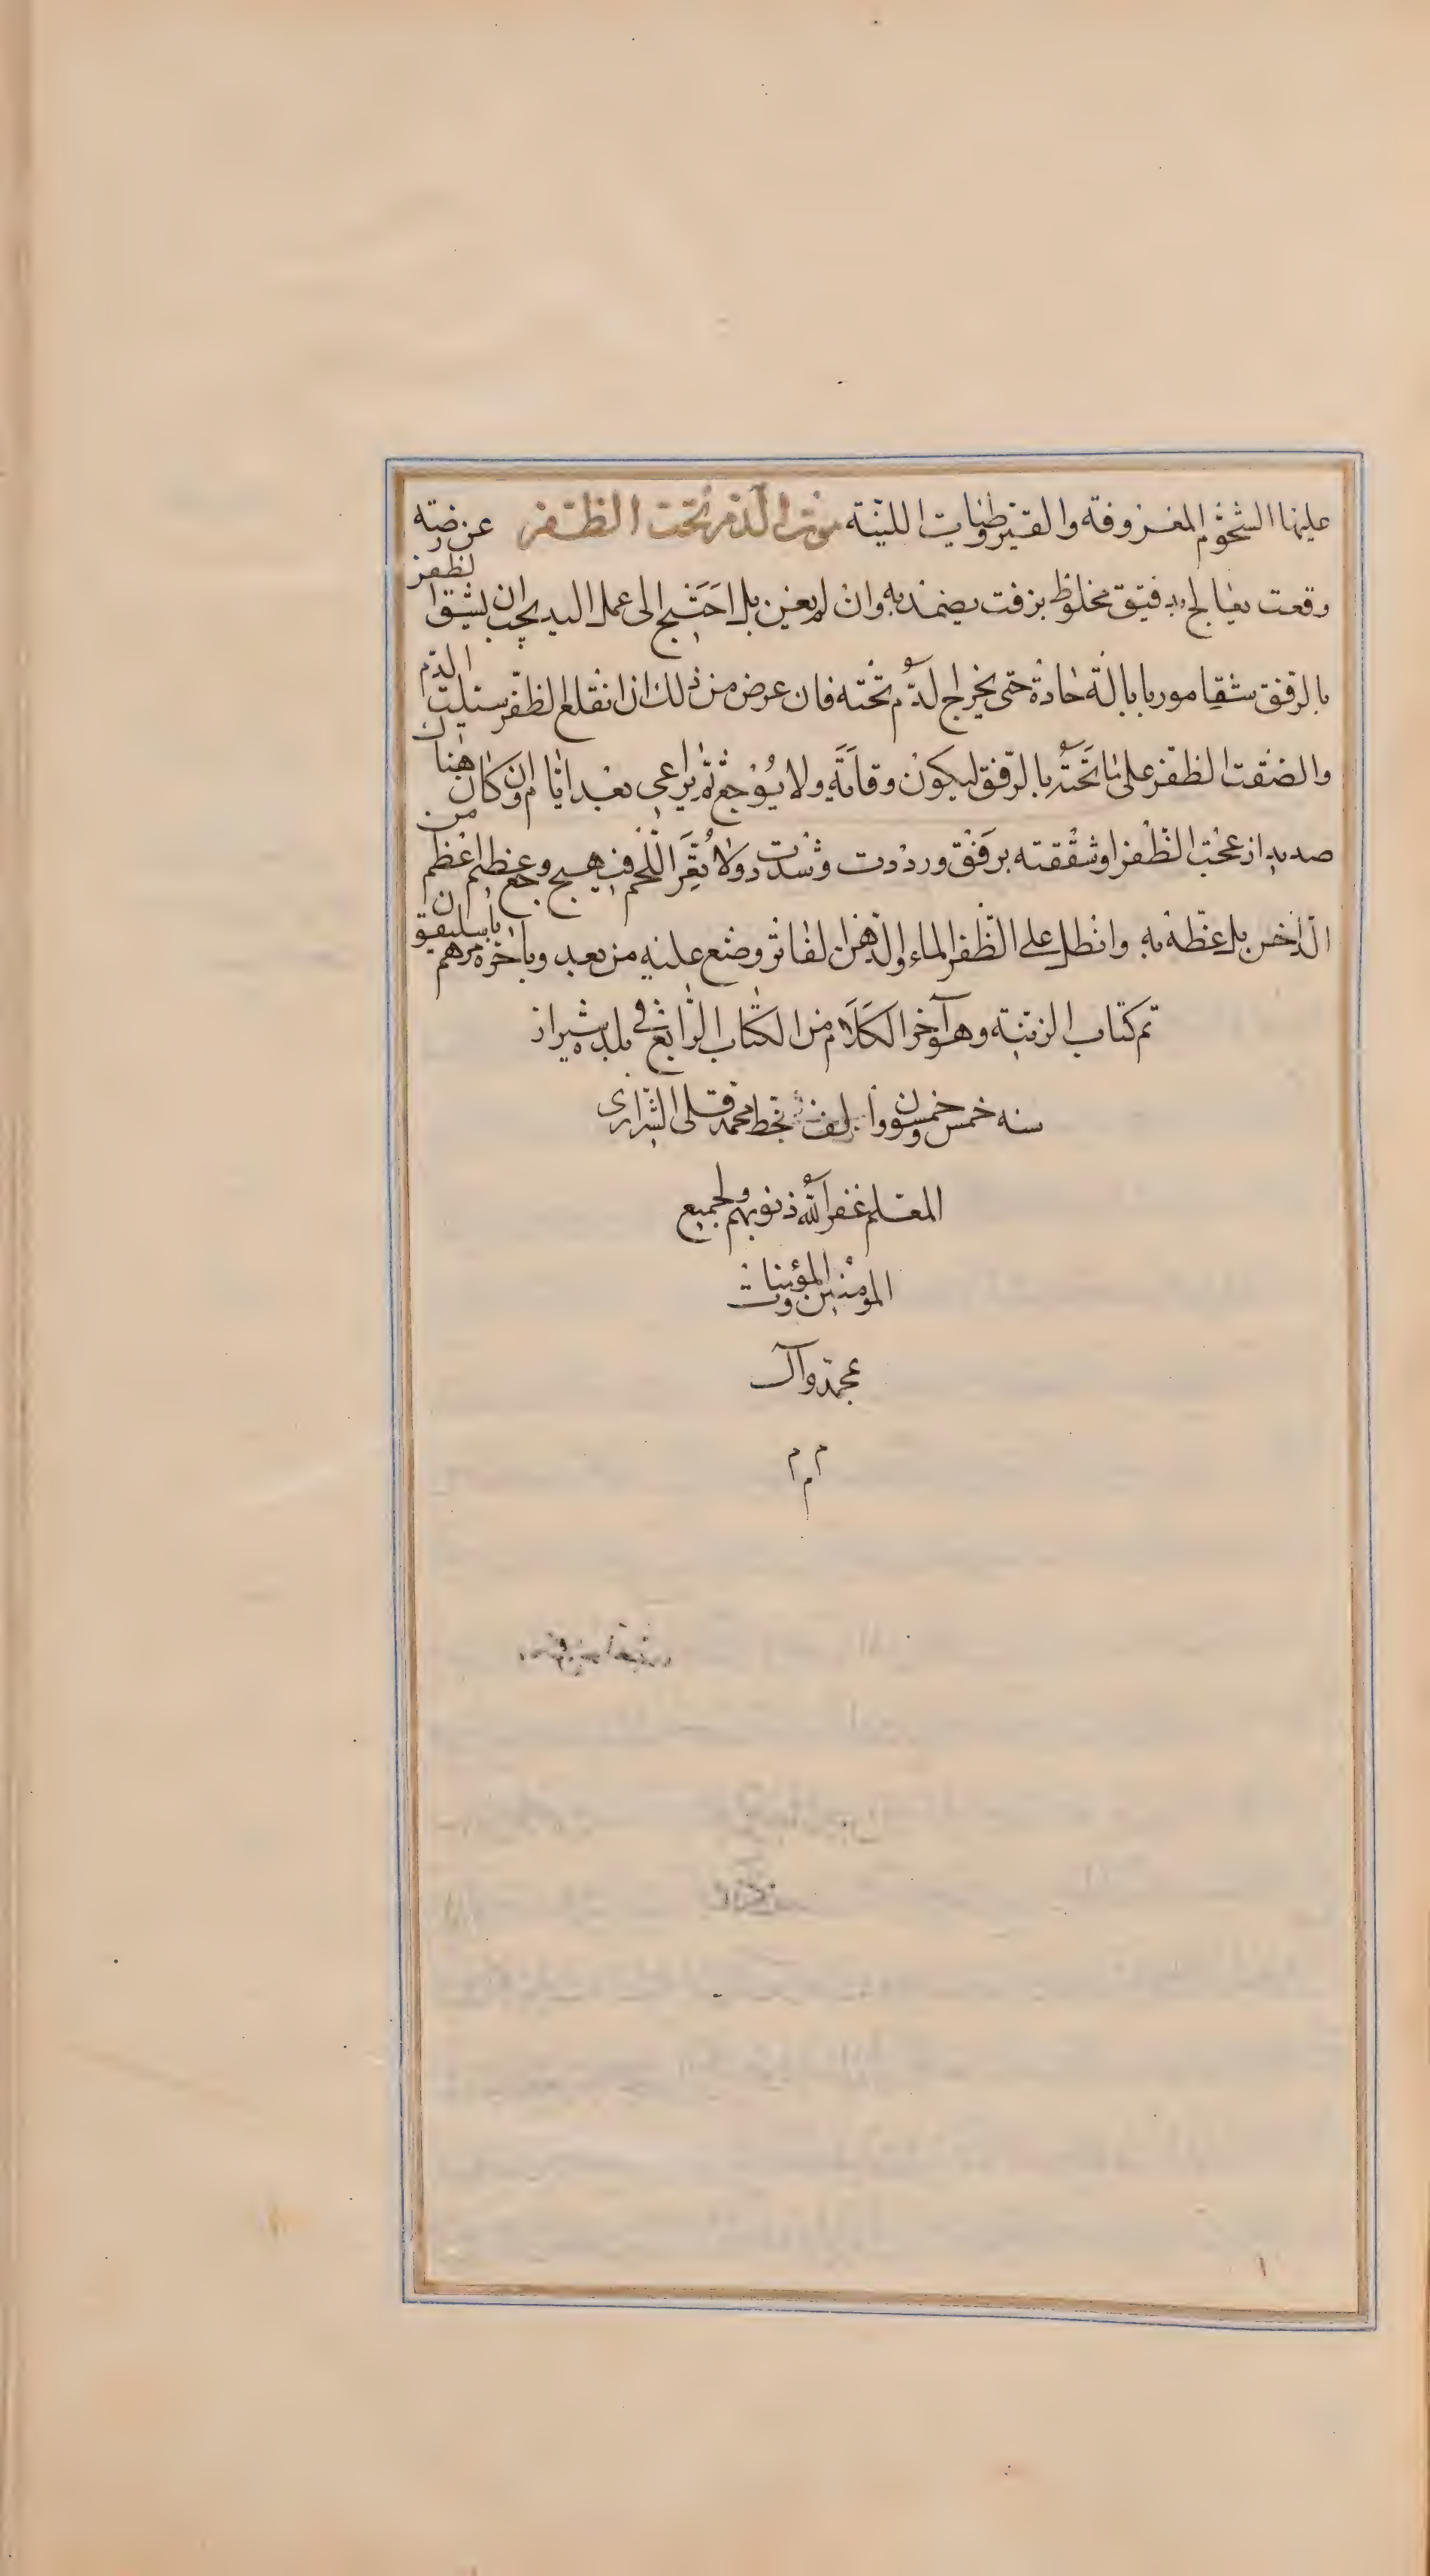 عليها الشحوم المعروفة والقيروطيات اللينة موت الدم تحت الظفر عن ضربة
وقعت يعالج بدقيق مخلوط بزفت يضمد به وان لم يغن بل احتيج الى عمل اليد يجب ان يشق الظفر
بالرفق شقا موربا بالة حادة حتى يخرج الدم تحته فان عرض من ذلك ان انقلع الظفر سيلت الدم
والصقت الظفر على ما تحته بالرفق ليكون وقاية ولا يوجع ثم يراعى بعد ايام وان كان هناك
صديد ازعجت الظفر او شققته برفق ورددت وشددت ولا تعر اللحم فيهيج وجع عظيم اعظم من
الداخس بل غطه به وانطل على الظفر الماء والدهن الفاتر وضع عليه من بعد وباخرة مرهم باسليقون
تم كتاب الزينة وهو آخر الكلام من الكتاب الرابع في بلده شيراز
سنه خمس وخمسون والف بخط محمد قلى الشيرازى
المعلم غفر الله ذنوبهم ولجميع
المومنين والمؤمنات
بمحمد وآله
م م م